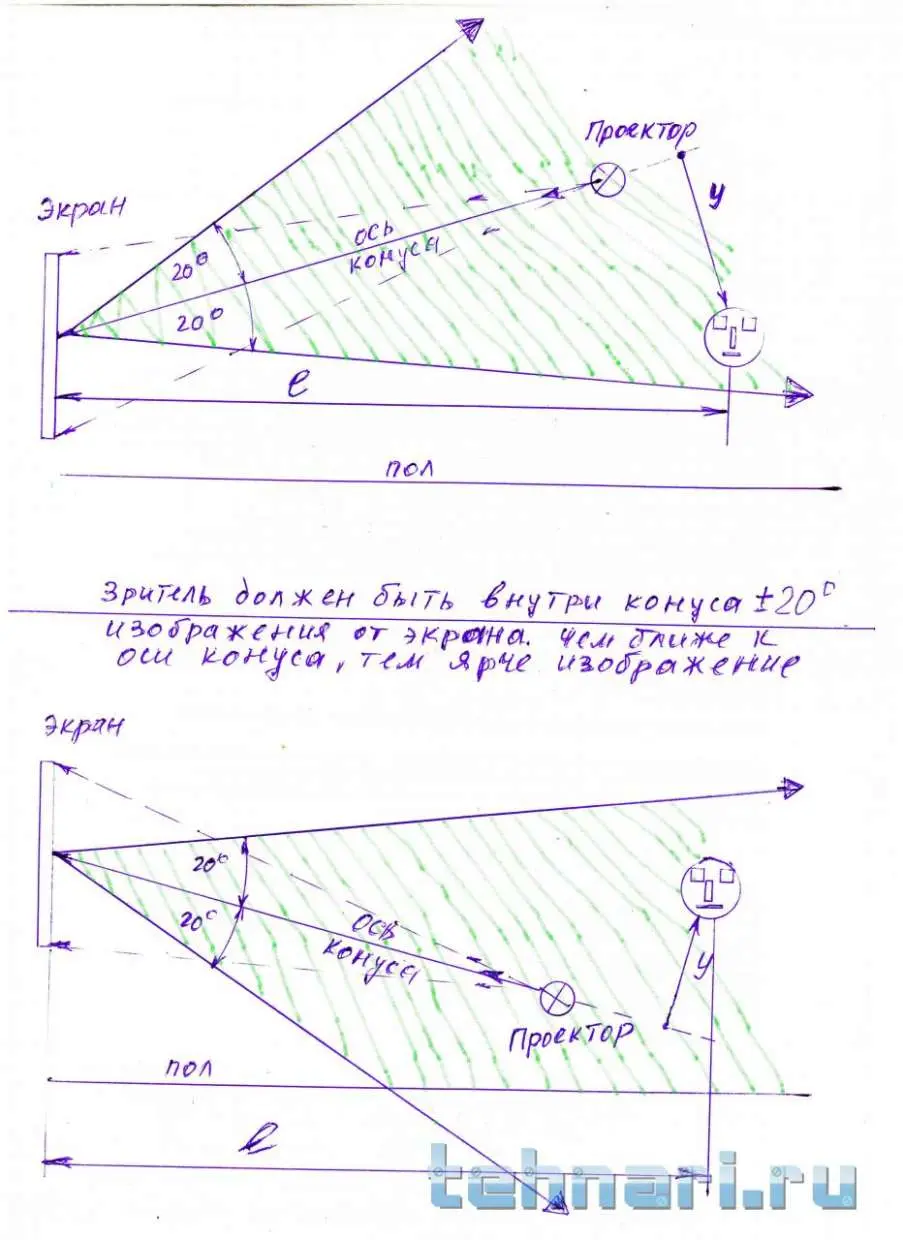 Проектор
Экран
y
ось
конуса
20°
20°
l
пол
Зритель должен быть внутри конуса ±20°
изображения от экрана. Чем ближе к
оси конуса, тем ярче изображение
Экран
20°
20°
ось
конуса
y
Проектор
пол
l
tehnari.ru